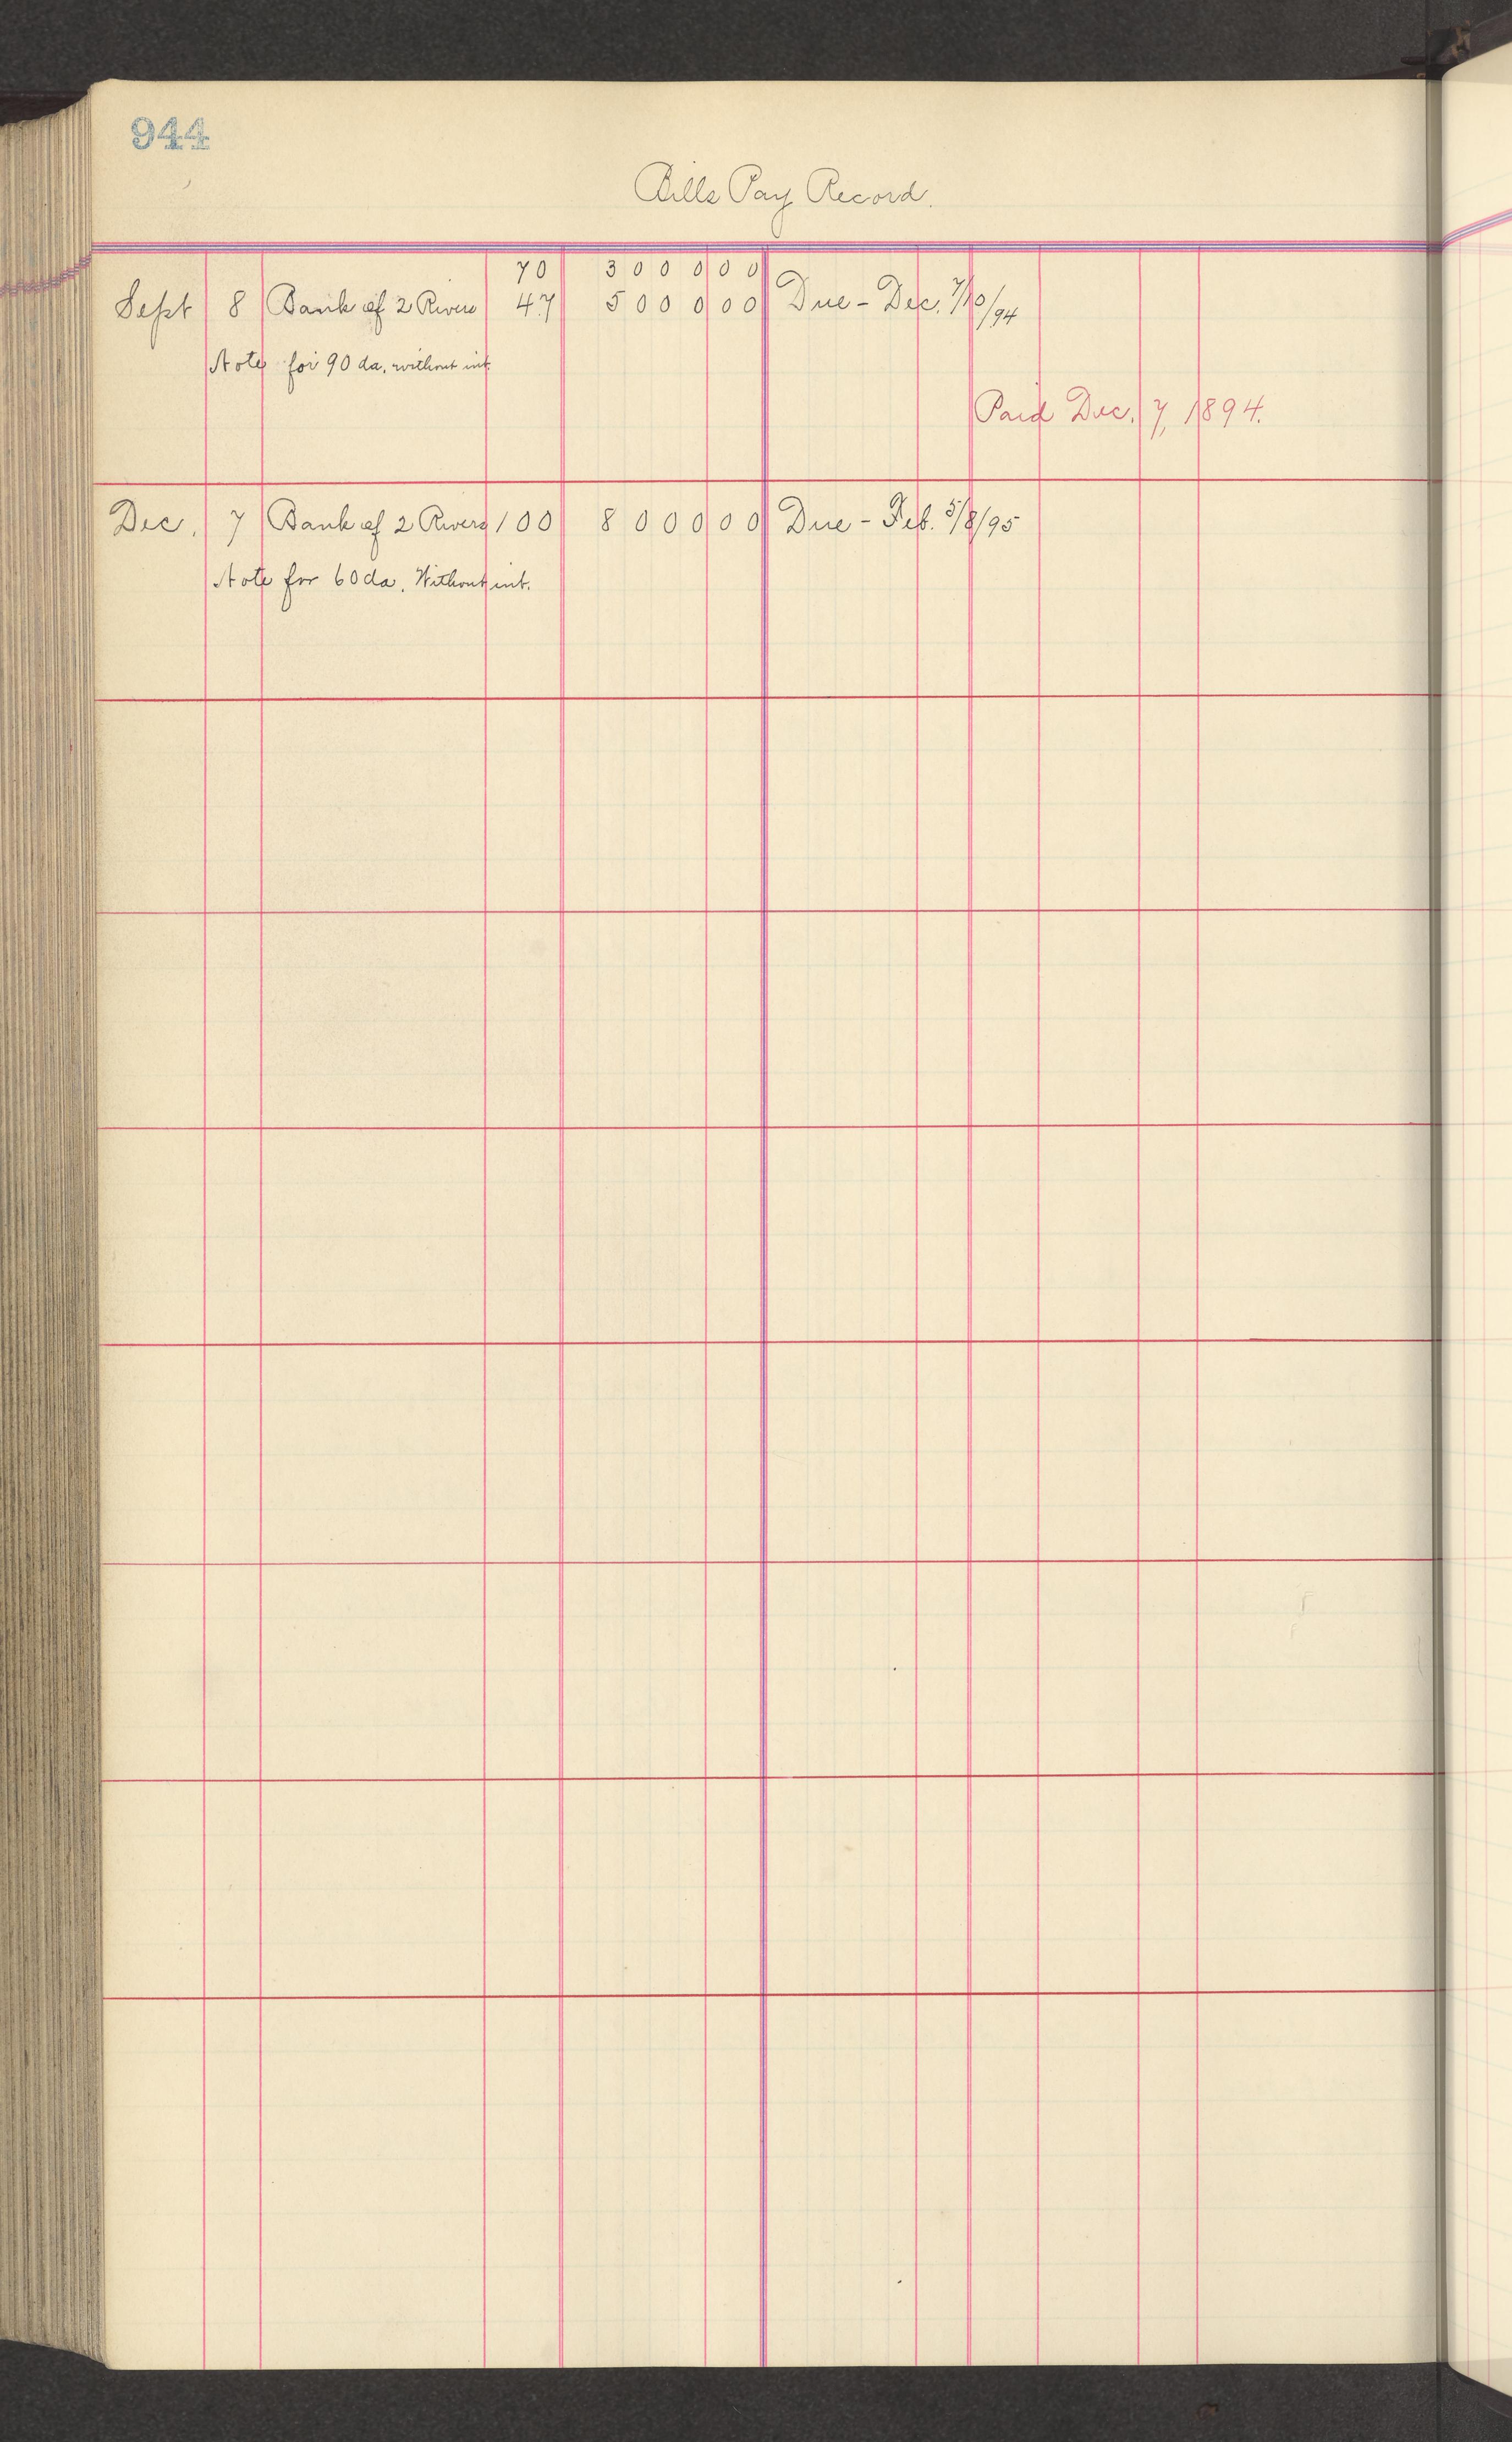 944
Bills Pay Record.
70 3000 00
Sept 8 Bank of 2 Rivers 47 5000 00 Due - Dec. 7/10/94
Note for 90 da. without int.
Paid Dec. 7, 1894.
Dec. 7 Bank of 2 Rivers 100 8000 00 Due - Feb. 5/8/95
Note for 60 da. Without int.